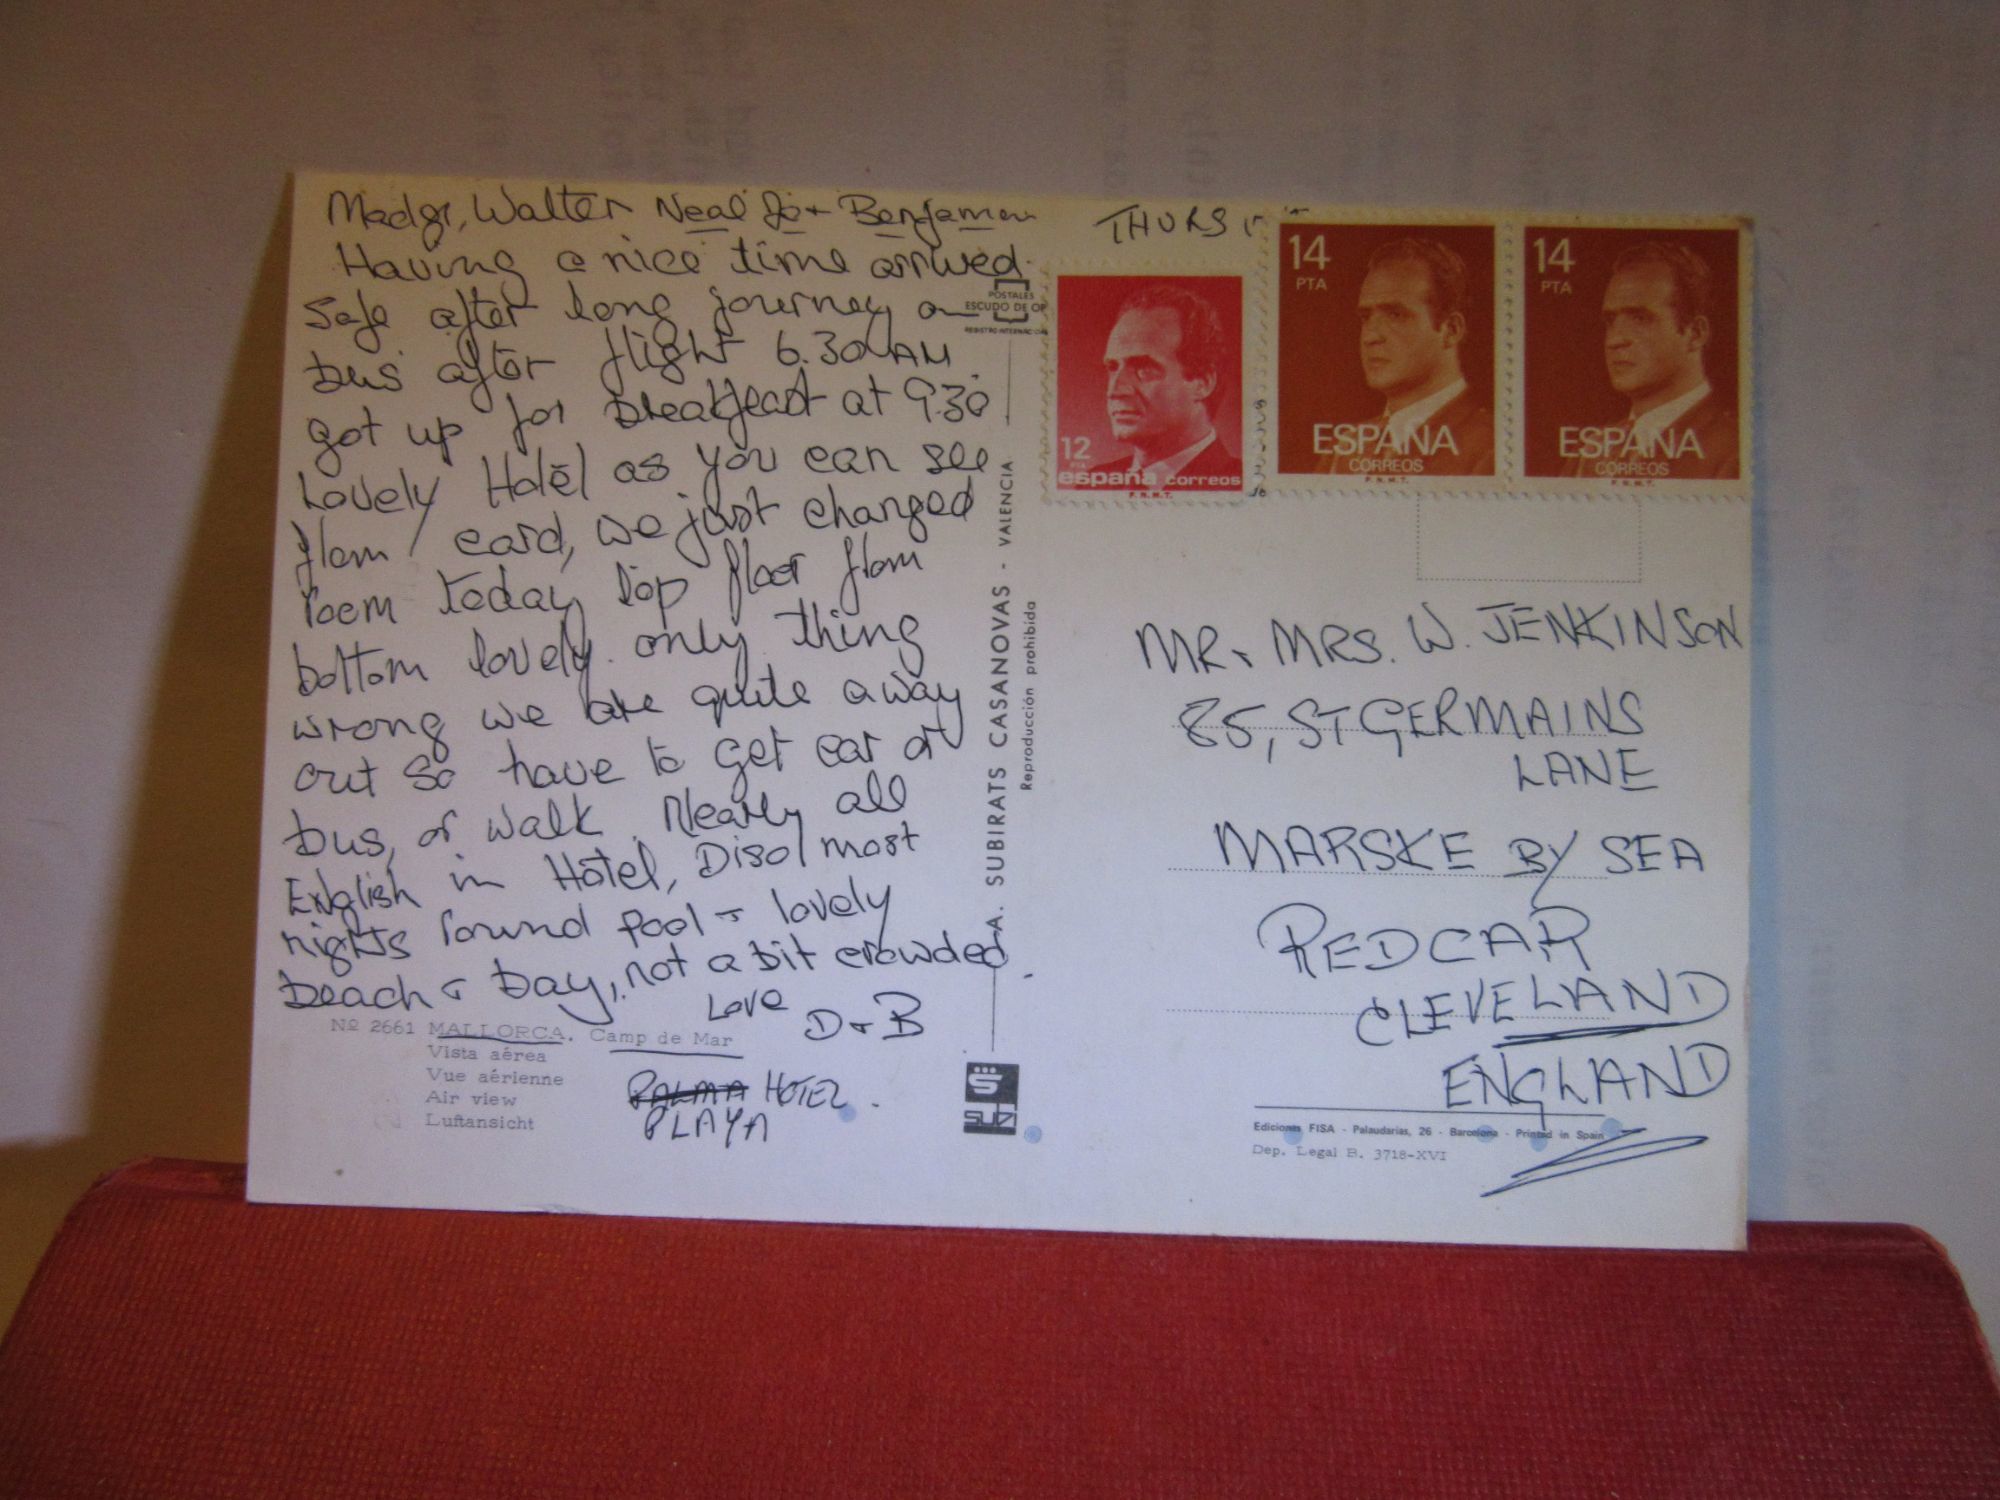 Madge, Walter Neal Jo + Benjamen
Having a nice time arrived
safe after long journey on
bus after flight 6.30 AM
got up for breakfast at 9.30
Lovely Hotel as you can see
from card, we just changed
room today top floor from
bottom lovely. only thing
wrong we are quite away
out so have to get car or
bus, or walk. Nearly all
English in Hotel, Disol most
nights round pool + lovely
beach + bay, not a bit crowded.
Love
D + B
Nº 2661 MALLORCA. Camp de Mar
Vista aérea
Vue aérienne
Air view
Luftansicht
PALMA HOTEL.
PLAYA
POSTALES
ESCUDO DE OR
REGISTRO INTERNACIO
A. SUBIRATS CASANOVAS - VALENCIA
Reproducción prohibida
SUBI
THURS
12
PTA
españa correos
F.N.M.T.
14
PTA
ESPAÑA
CORREOS
F.N.M.T.
14
PTA
ESPAÑA
CORREOS
F.N.M.T.
MR + MRS. W. JENKINSON
85, ST GERMAINS
LANE
MARSKE BY SEA
REDCAR
CLEVELAND
ENGLAND
Ediciones FISA - Palaudarias, 26 - Barcelona - Printed in Spain
Dep. Legal B. 3718-XVI